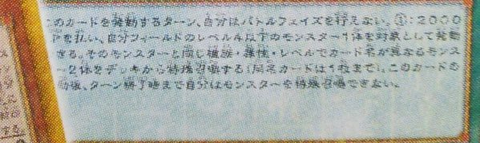 このカードを発動するターン、自分はバトルフェイズを行えない。①：2000
を払い、自分フィールドのレベル４以下のモンスター１体を対象として発動
きる。そのモンスターと同じ種族・属性・レベルでカード名が異なるモンス
ー２体をデッキから特殊召喚する（同名カードは１枚まで）。このカードの
動後、ターン終了時まで自分はモンスターを特殊召喚できない。